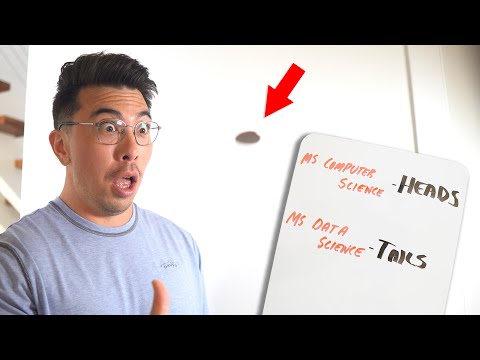 MS COMPUTER
SCIENCE - HEADS
MS DATA
SCIENCE - TAILS